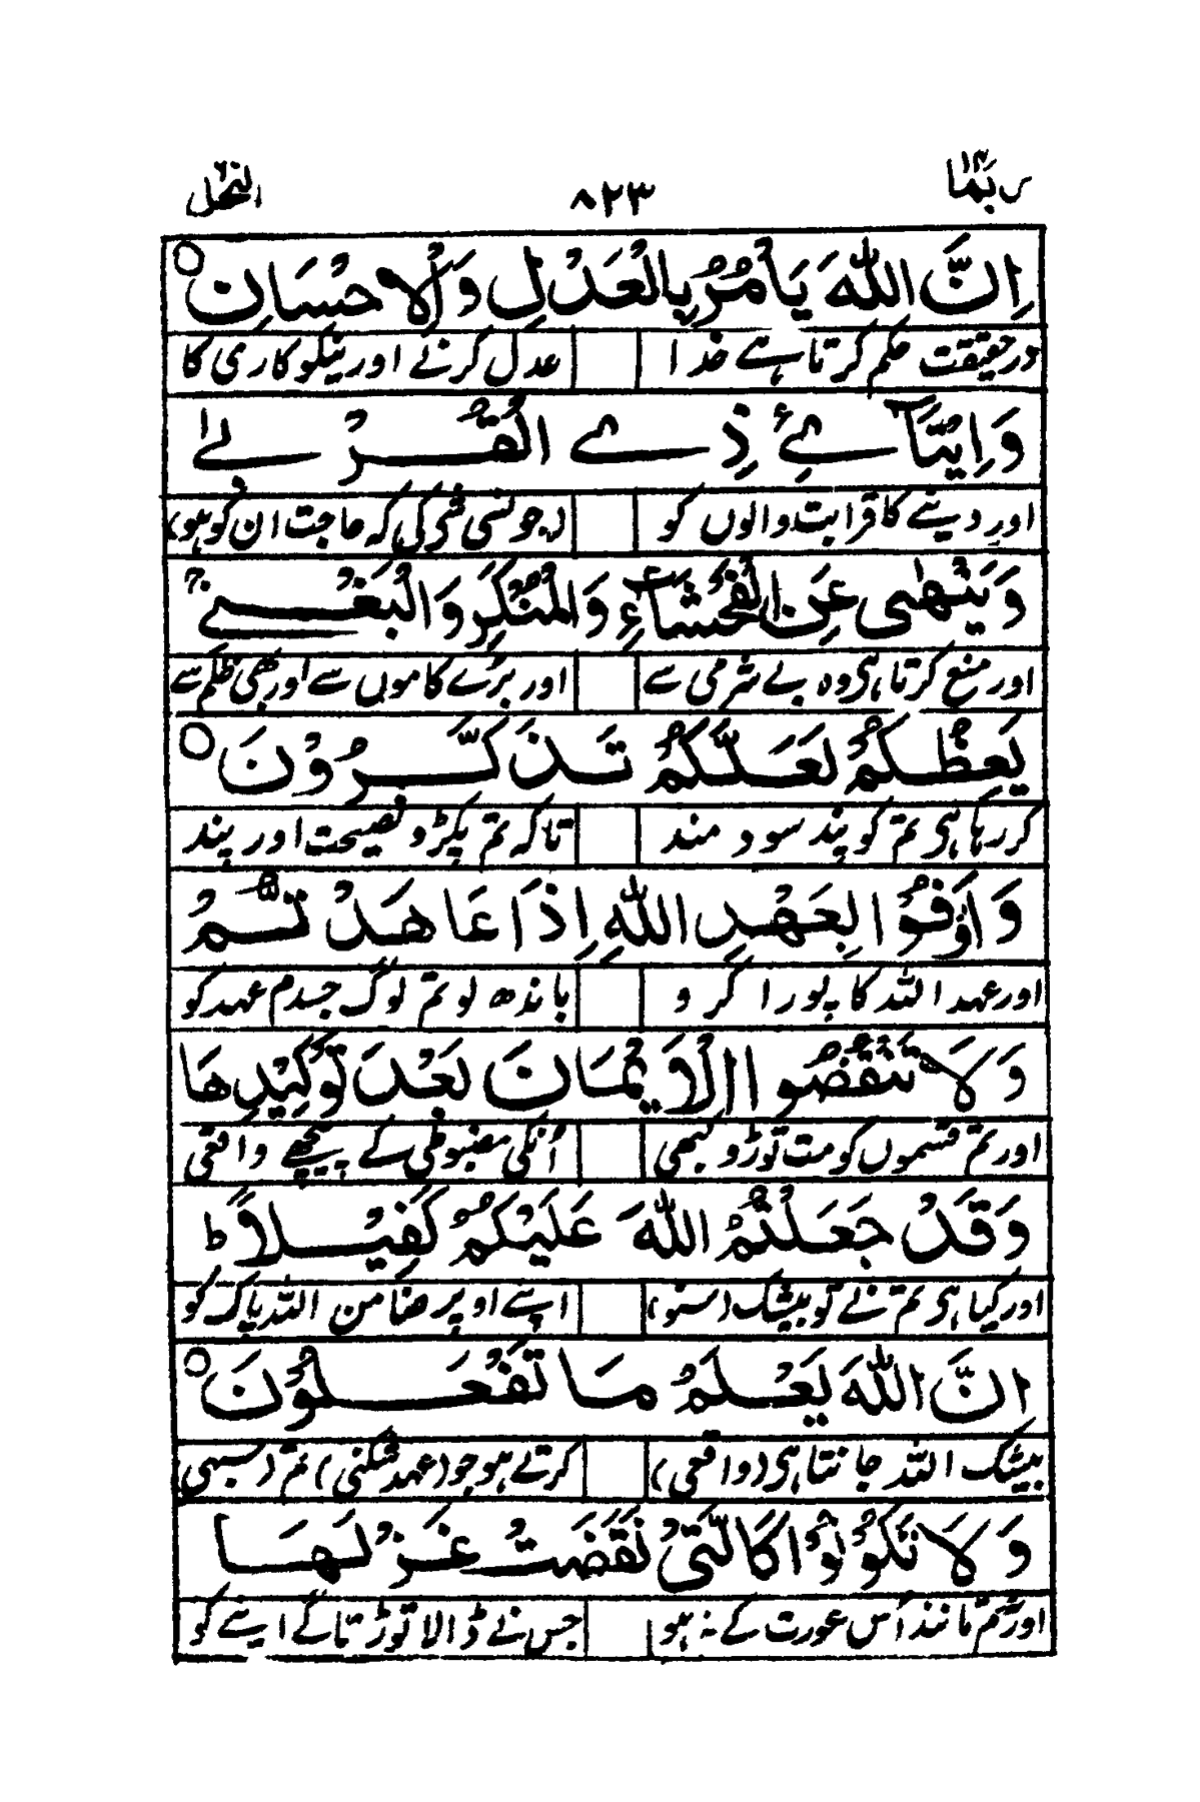 ربما ۱۴ ۸۲۳ النحل
اِنَّ اللّٰهَ یَاْمُرُ بِالْعَدْلِ وَالْاِحْسَانِ ○
درحقیقت حکم کرتا ہے خدا عدل کرنے اور نیکوکاری کا
وَاِیْتَآئِ ذِے الْقُرْبٰے
اور دینے کا قرابت والوں کو (جونسی شے کی کہ حاجت ان کو ہو)
وَیَنْهٰی عَنِ الْفَحْشَآءِ وَالْمُنْکَرِ وَالْبَغْیِ ۚ
اور منع کرتا ہی وہ بے شرمی سے اور برے کاموں سے اور بھی ظلم سے
یَعِظُکُمْ لَعَلَّکُمْ تَذَکَّرُوْنَ ○
کر رہا ہی تم کو پند سود مند تاکہ تم پکڑو نصیحت اور پند
وَاَوْفُوْا بِعَهْدِ اللّٰهِ اِذَا عَاهَدْتُّمْ
اور عہد اللہ کا پورا کرو باندھ لو تم لوگ جسدم عہد کو
وَلَا تَنْقُضُوا الْاَیْمَانَ بَعْدَ تَوْکِیْدِهَا
اور تم قسموں کو مت توڑو کبھی اُنکی مضبوطی کے پیچھے واقعی
وَقَدْ جَعَلْتُمُ اللّٰهَ عَلَیْکُمْ کَفِیْلًا ؕ
اور کیا ہی تم نے تو بیشک (سنو) اپنے اوپر ضامن اللہ پاک کو
انَّ اللّٰهَ یَعْلَمُ مَا تَفْعَلُوْنَ ○
بیشک اللہ جانتا ہی (واقعی) کرتے ہو جو (عہد شکنی) تم (سبھی
وَلَا تَکُوْنُوْا کَالَّتِیْ نَقَضَتْ غَزْلَهَا
اور تم مانند اُس عورت کے نہ ہو جس نے ڈالا توڑ تاگے اپنے کو